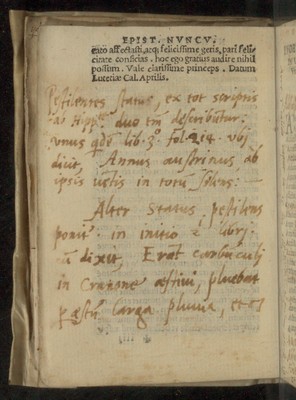 EPIST. NVNCV.
cuto affectasti, atq; felicissime geris, pari feli-
citate conficias. hoc ego gratius audire nihil
possum. Vale clarissime princeps. Datum
Lutetiæ Cal. Aprilis.
Pestilentes status, ex tot scriptis
ab Hipp. duo tm̃ describuntur:
vnus lib. 3. fol. 214. vbj
dicit, Annus austrinus ab
ipsis in totũ :
Alter status pestilens
ponit in initio 2 librj.
cũ dixit, Erãt carbunculj
in Cranone æstiui, pluebat
æstũ larga pluuia, et